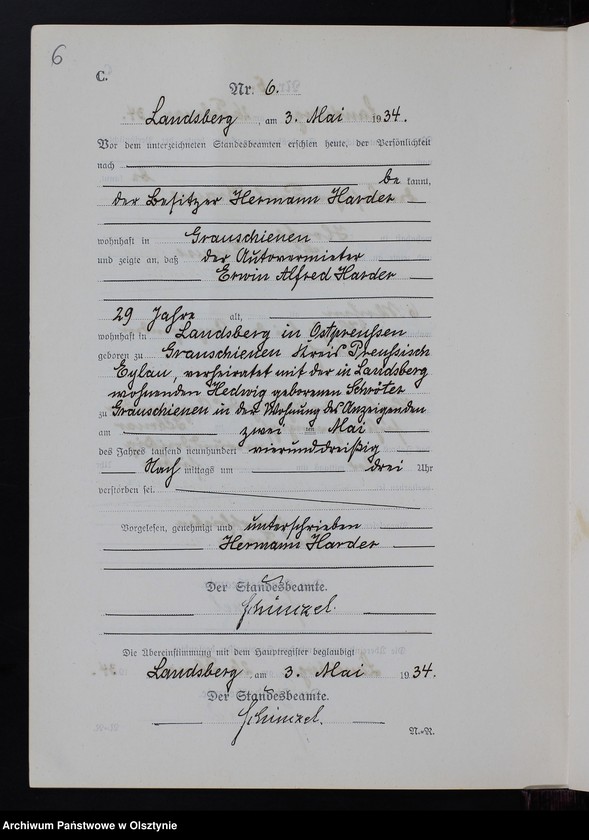 6
C.
Nr. 6.
Landsberg, am 3. Mai 1934.
Vor dem unterzeichneten Standesbeamten erschien heute, der Persönlichkeit
nach
be kannt,
der Besitzer Hermann Harder
wohnhaft in Grauschienen
und zeigte an, daß der Autovermieter
Erwin Alfred Harder
29 Jahre alt,
wohnhaft in Landsberg in Ostpreußen
geboren zu Grauschienen Kreis Preußisch
Eylau, verheiratet mit der in Landsberg
wohnenden Hedwig geborenen Schröter
zu Grauschienen in der Wohnung des Anzeigenden
am zwei ten Mai
des Jahres tausend neunhundert vierunddreißig
Nach mittags um drei Uhr
verstorben sei.
Vorgelesen, genehmigt und unterschrieben
Hermann Harder
Der Standesbeamte.
Schimzel.
Die Übereinstimmung mit dem Hauptregister beglaubigt
Landsberg, am 3. Mai 1934.
Der Standesbeamte.
Schimzel.
N.-R.
Archiwum Państwowe w Olsztynie